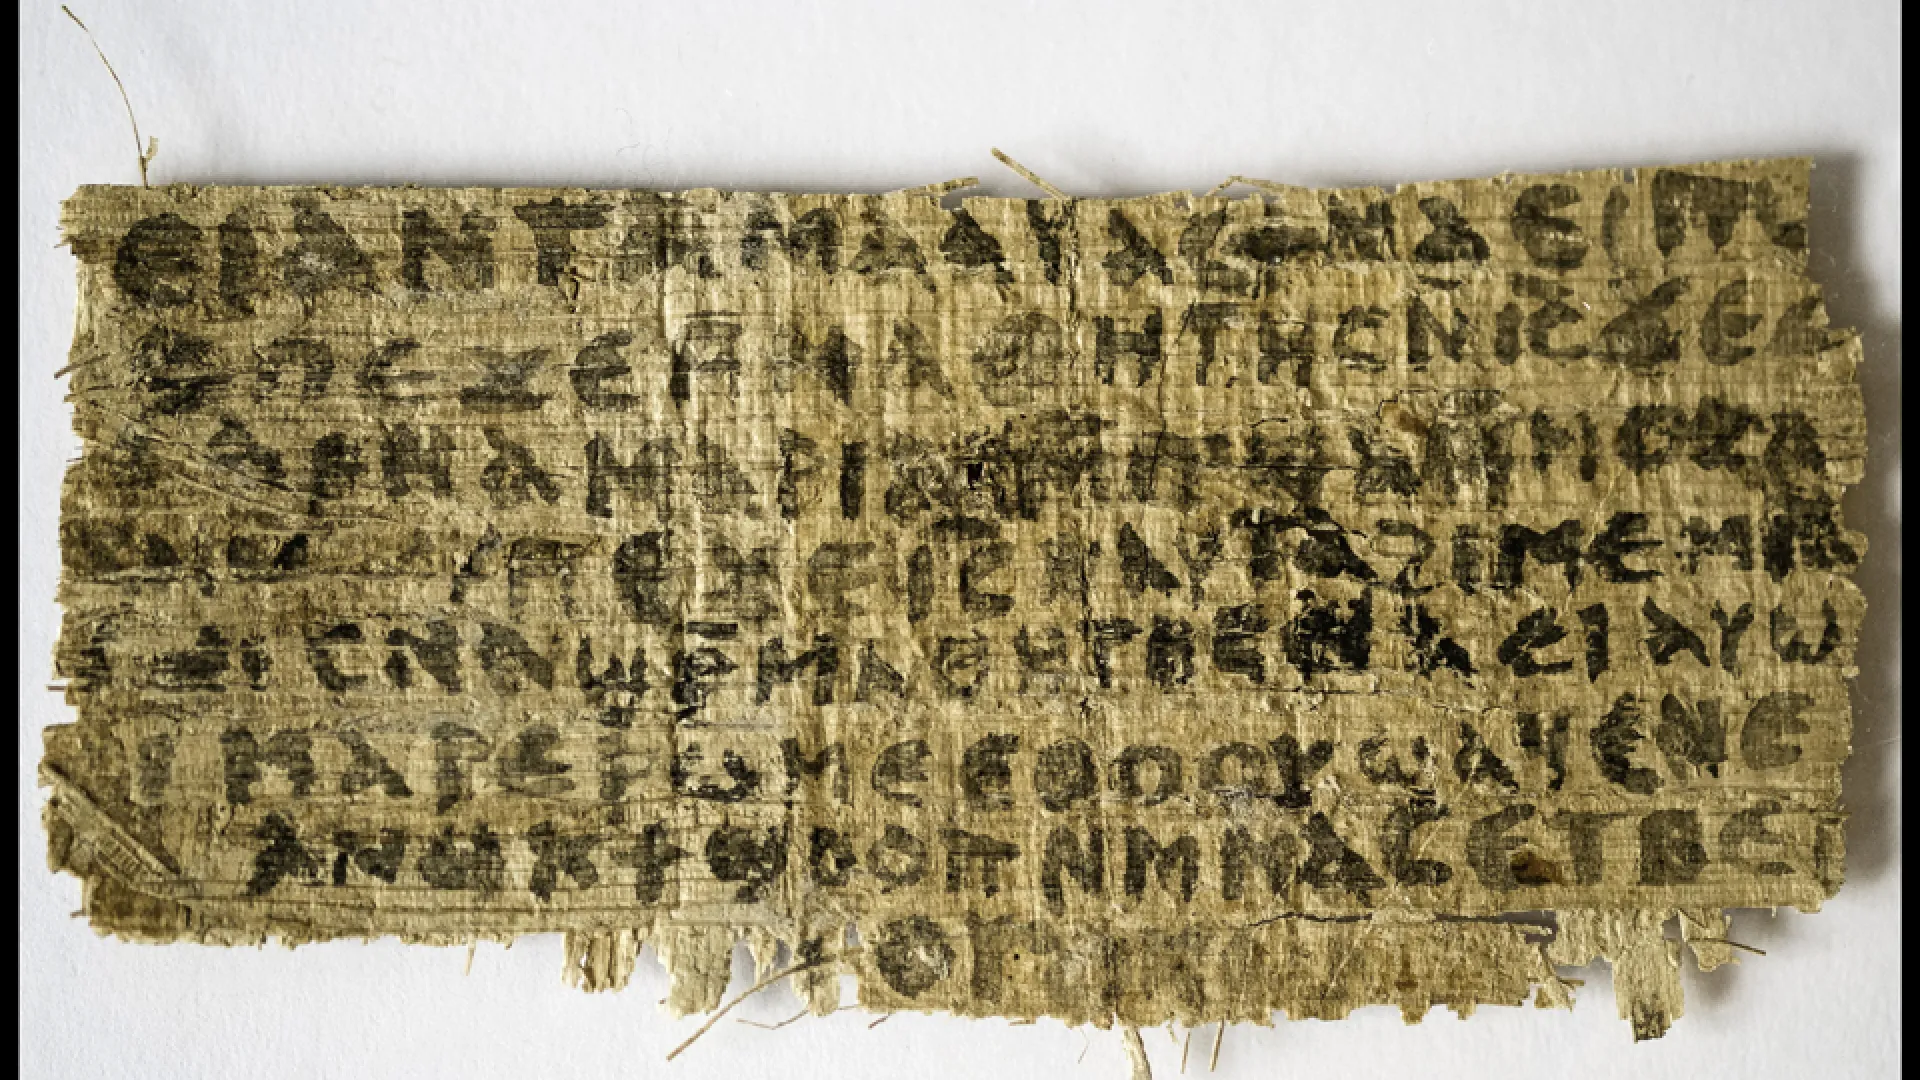 ⲉⲓ ⲁⲛ ⲧⲁⲙⲁⲁⲩ ⲁⲥϯ ⲛⲁⲉⲓ ⲡⲱ
ⲡⲉϫⲉ ⲙⲙⲁⲑⲏⲧⲏⲥ ⲛⲓⲥ ϫⲉ ⲥ
ⲁⲣⲛⲁ ⲙⲁⲣⲓⲁⲙ ⲙⲡϣⲁ ⲙⲙⲟⲥ ⲁⲛ
ⲡⲉϫⲉ ⲓⲥ ⲛⲁⲩ ⲧⲁϩⲓⲙⲉ ⲙⲛ
ⲥⲛⲁϣⲣⲙⲁⲑⲏⲧⲏⲥ ⲛⲁⲉⲓ ⲁⲩⲱ
ⲙⲁⲣⲉⲣⲱⲙⲉ ⲉⲑⲟⲟⲩ ϣⲁϥⲉ ⲛⲉ
ⲁⲛⲟⲕ ϯϣⲟⲟⲡ ⲛⲙⲙⲁⲥ ⲉⲧⲃⲉ ⲡ